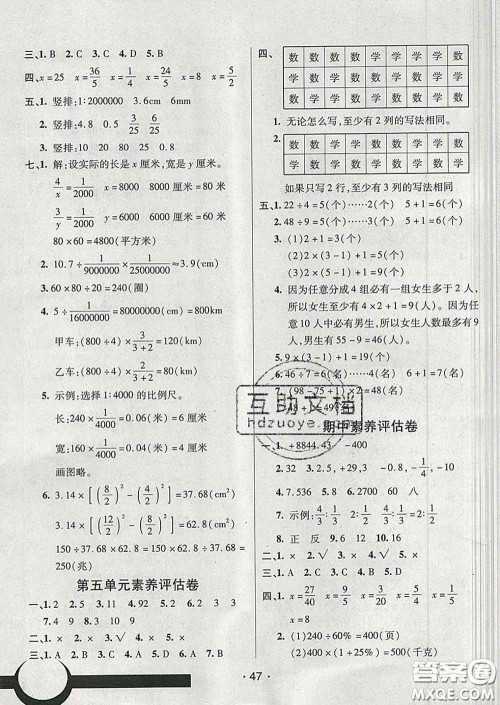 三、1. B 2. C 3. C 4. D 5. B
四、x=25 x=36/5 x=1/4 x=24/5 x=8 x=5/2
五、1. 竖排:1:2000000 3.6cm 6mm
2. 竖排:4.8 0.5 32/125 6/25
3. 竖排:10 20 8.4 10
七、1. 解:设实际的长是 x 厘米,宽是 y 厘米。
4/x=1/2000 x=8000 8000 厘米=80 米
3/y=1/2000 y=6000 6000 厘米=60 米
80×60=4800(平方米)
2. 10.7÷1/9000000×1/25000000≈3.9(cm)
3. 60×80÷20=240(圈)
4. 5÷1/16000000=80000000(cm)=800(km)
甲车:(800÷4)×3/(3+2)=120(km)
乙车:(800÷4)×2/(3+2)=80(km)
5. 示例:选择 1:4000 的比例尺。
长:240×1/4000=0.06(米)=6(厘米)
宽:160×1/4000=0.04(米)=4(厘米)
画图略。
6. 3.14×[(8/2)²-(4/2)²]=37.68(cm²)
3.14×[(12/2)²-(8/2)²]=62.8(cm²)
150÷37.68×62.8=250
150÷37.68×62.8=250(兆)
第五单元素养评估卷
一、1. 2 2. 5 3. 11 4. 92 5. 2 6. 3 7. 9
8. 2 9. 2
二、1. × 2. × 3. √ 4. × 5. ×
三、1. A 2. D 3. B 4. B 5. B
四、
数 数 数 数 学 学 学 学 数
数 学 数 学 数 学 数 学 数
学 数 数 学 数 学 学 数 学
1. 无论怎么写,至少有 2 列的写法相同。
2.
数 数 学 学 数 数 学 学 数
数 学 数 学 数 学 数 学 学
如果只写 2 行,至少有 3 列的写法相同
五、1. 22÷4=5(个)……2(个) 5+1=6(个)
2. 48÷9=5(个)……3(个) 5+1=6(个)
3. (1)2+1=3(个)
(2)2×(3-1)+1=5(个)
(3)2×(5-1)+1=9(个)
4. 因为任意分成 4 组必有一组女生多于 2 人,
所以女生至少 4×2+1=9(人)。因为任意
10 人中必有男生,所以女生人数最多 9
人。所以男生 55-9=46(人)。
5. 9×(3-1)+2=20(个)
6. 46÷7=6(名)……4(名) 6+1=7(名)
7. (98-75+1)×2
48+1=49
互助文档
hdzuoye.com
期中素养评估卷
一、1. +8844.43 -400
2. 32 3. -2,+5,+29,3 -0.8,-1/4
4. 7.536 5. 8 6. 9.0 2700 60 八
7. 示例:4/3 1/3=2/3÷1/2
8. 正 反 9. 24 10. 6
二、1. × 2. √ 3. √ 4. × 5. ×
三、1. A 2. C 3. D 4. C 5. A
四、1. x=27/40 x=9/5 x=3 x=15/4 x=1/5
x=8
2. (1)240÷60%=400(页)
(2)400×(1+25%)=500(千克)
· 47 ·
答案圈
MXQE.COM